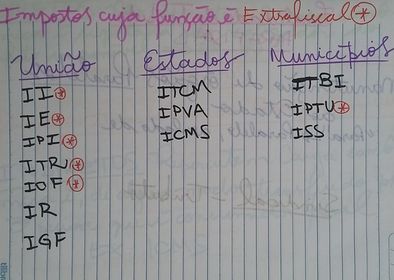 Impostos cuja função é Extrafiscal *
União
II *
IE *
IPI *
ITR *
IOF *
IR
IGF
Estados
ITCM
IPVA
ICMS
Municípios
ITBI
IPTU *
ISS